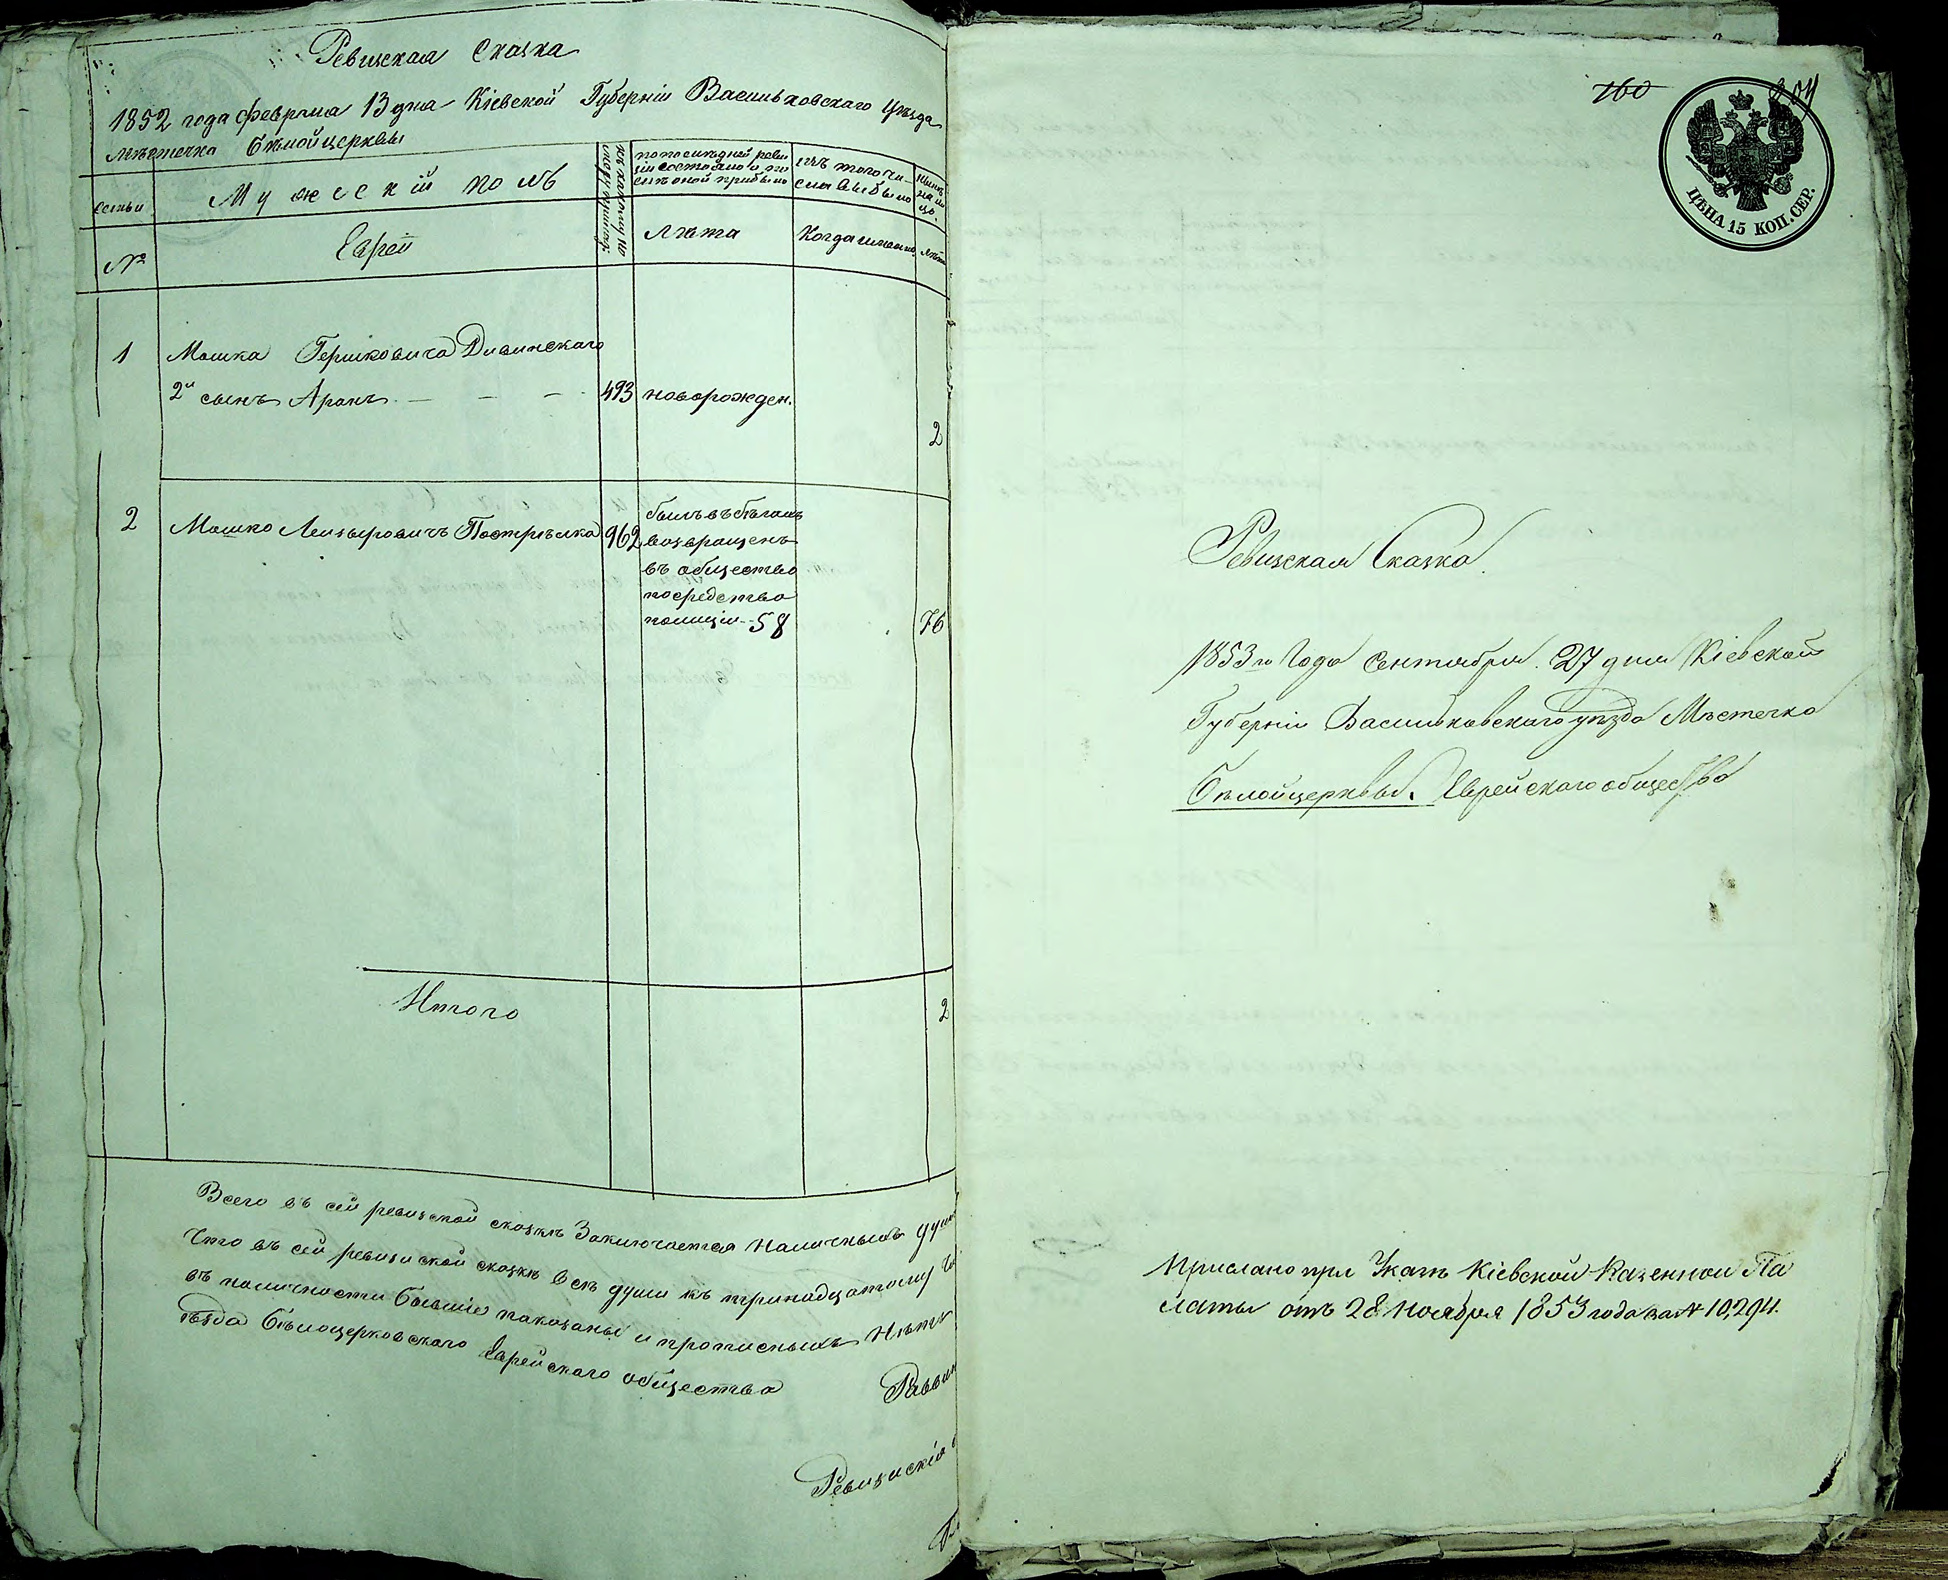 Ревизская Сказка
1852 года февраля 13 дня Кіевской Губерніи Васильковскаго Уѣзда
мѣстечка Бѣлойцерквы
семьи
Мужескій полъ
по последней реви
зіи состояло и по
слѣ оной прибыло
изъ того чи-
сла выбыло
№
Еврей
Лѣта
Когда именно
лѣта
1
Мошка Гершковича Дивинскаго
2й сынъ Аронъ - - - 493 новорожден.
2
2
Мошко Лейзыровичъ Пострѣлка 962 былъ въ бѣгахъ
возвращенъ
въ общество
посредство
полиціи - 58
76
Итого 2
Всего въ сей ревизской сказкѣ Заключается Наличныхъ душ
Что въ сей ревизской сказкѣ всѣ души къ тринадцатому
въ наличности бывшіе показаны и прописныхъ Нѣтъ
Бѣлоцерковскаго Еврейскаго общества
Раввин
Ревизскіе
160 204
ЦѢНА 15 КОП. СЕР.
Ревизская Сказка
1853го Года Сентября 27 дня Кіевской
Губерніи Васильковскаго уѣзда Мѣстечка
Бѣлойцерквы. Еврейскаго общества
Прислано при Указѣ Кіевской Казенной Па
латы отъ 28 Ноября 1853 года за № 10,294.